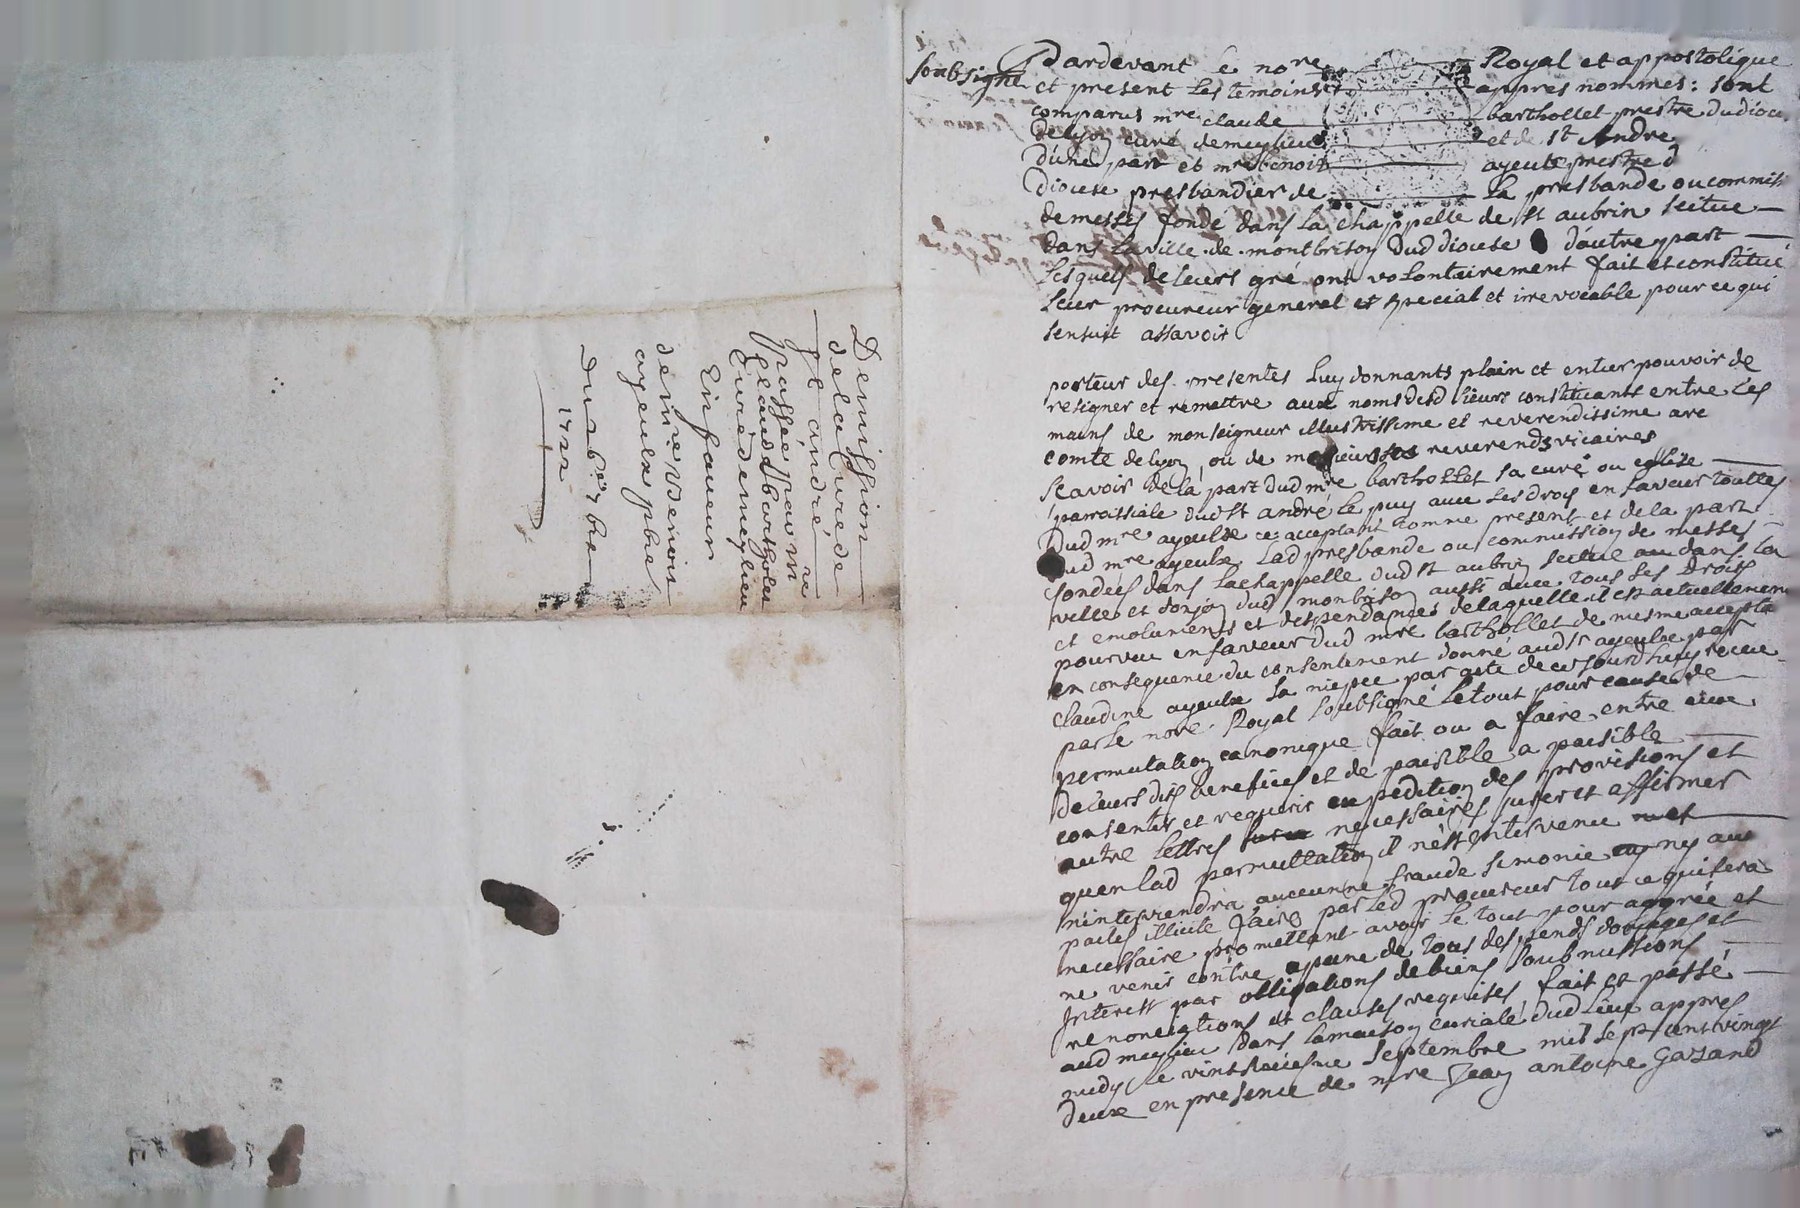 Demission
de la Cure de
St andré
passée par mre
Claude bartholet
Curé de meylieu
En faveur
de mre Benoit
ayeulx pbre
du 26e 7bre
1722
soubsigné
Pardevant le nore Royal et appostolique
et present les temoins appres nommes: sont
comparus mre claude barthollet prestre du dioce
de lyon curé de meylieu et de st Andre
d'une part et mre benoit ayeulx prestre d
diocese presbandier de la presbande ou commiss
de messes fondé dans la chappelle de st aubrin scitue
dans la ville de montbrison dud diocese d'autre part
lesquels de leurs gré ont volontairement fait et constitué
leur procureur general et special et irrevocable pour ce qui
sensuit assavoir
porteur des presentes luy donnants plain et entier pouvoir de
resigner et remettre aux noms desd sieurs constituants entre les
mains de monseigneur illustrissime et reverendissime arc
comte de lyon, ou de messieurs ses reverends vicaires
scavoir de la part dud mre barthollet sa cure ou eglise
parroissiale dud st andré le puy avec les droys en faveur
dud mre ayeulx ce acceptant comme present et de la part
dud mre ayeulx lad presbande ou commission de messes
fondées dans la chappelle dud st aubrin scitue dans la
ville et donjon dud montbrison aussi avec tous ses droits
et emoluments et despendances de laquelle il est actuellement
pourveu en faveur dud mre barthollet de mesme acceptant
en consequence du consentement donné aud sr ayeulx par
claudine ayeulx sa niepce par acte de ce jourd'huy receu
par le nore Royal soubsigné le tout pour cause de
permutation canonique fait ou a faire entre eux
de leurs dits benefices et de paisible a paisible
consentir et requerir expedition des provisions et
autre lettres necessaires jurer et affirmer
quen lad permuttation il n'est intervenu
n'interviendra aucunne fraude simonie ny au
pactes illicite faire par led procureur tout ce qui sera
necessaire promettant avoir le tout pour aggréé et
ne venir contre a peine de tous despends domages et
Interest par obligations de biens soubmissions
renonciations et clauses requises, fait et passé
aud meylieu dans la maison curiale dud lieu appres
midy le vint sixiesme septembre mil sept cent vingt
deux en presence de mre Jean antoine Gazand